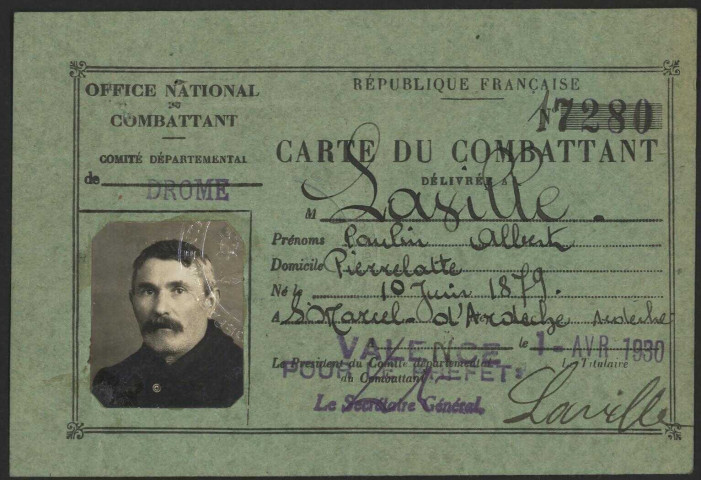 OFFICE NATIONAL
DU
COMBATTANT
COMITÉ DÉPARTEMENTAL
de DROME
RÉPUBLIQUE FRANÇAISE
N° 17280
CARTE DU COMBATTANT
DÉLIVRÉE A
M Laville.
Prénoms Paulin Albert
Domicile Pierrelatte
Né le 10 Juin 1879.
A St Marcel-d'Ardèche Ardèche
VALENCE le 1- AVR 1930
Le Président du Comité départemental
du Combattant,
POUR LE PREFET:
Le Secrétaire Général,
Titulaire
Laville